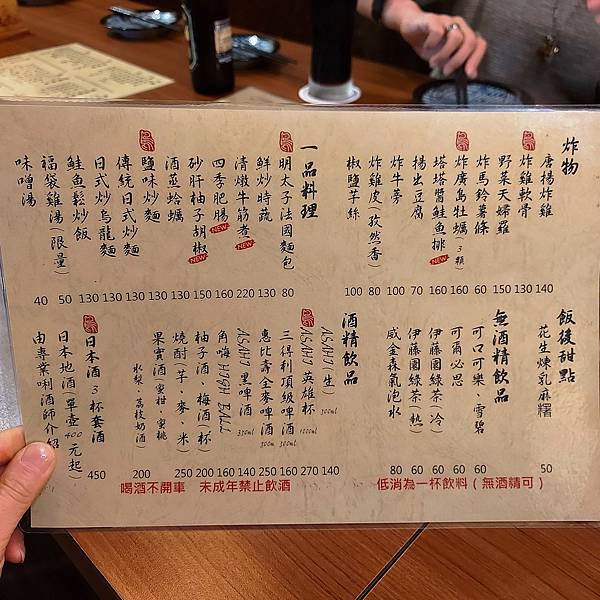 炸物
唐揚炸雞 140
炸雞軟骨 130
野菜天婦羅 150
炸馬鈴薯條 60
炸廣島牡蠣(3顆) 160
塔塔醬鮭魚排 NEW 160
揚出豆腐 70
炸牛蒡 100
炸雞皮(孜然香) 80
椒鹽芋絲 100
一品料理
明太子法國麵包 80
鮮炒時蔬 130
清燉牛筋煮 NEW 220
四季肥腸 NEW 160
砂肝柚子胡椒 NEW 150
酒蒸蛤蠣 130
鹽味炒麵 130
傳統日式炒麵 130
日式炒烏龍麵 130
鮭魚鬆炒飯 130
福袋雞湯(限量) 50
味噌湯 40
飯後甜點
花生煉乳麻糬 50
無酒精飲品
可口可樂、雪碧 60
可爾必思 60
伊藤園綠茶(冷) 60
伊藤園綠茶(熱) 60
威金森氣泡水 80
酒精飲品
ASAHI(生) 140
ASAHI英雄杯 1000ml 270
三得利頂級啤酒 160
惠比壽全麥啤酒 250
ASAHI黑啤酒 330ml 140
角嗨 HIGH BALL 160
柚子酒、梅酒(杯) 200
燒酎(芋、麥、米) 250
果實酒(蜜柑、蜜桃
水梨、荔枝奶酒) 200
日本酒3杯套酒 450
日本地酒(單壺400元起)
由專業唎酒師介紹
喝酒不開車 未成年禁止飲酒
低消為一杯飲料(無酒精可)